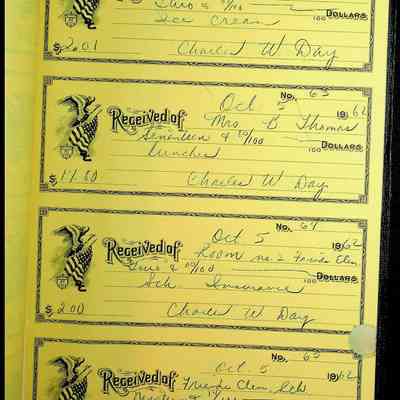 Two & 01/100 DOLLARS
Ice Cream
$2.01 Charles W Day
No. 63
Oct 5 1962
Received of Mrs B Thomas
Seventeen & 80/100 DOLLARS
Lunches
Charles W Day
No. 64
Oct 5 1962
Received of Room no. 2 Elem
Two & 00/100 DOLLARS
Sch Insurance
$2.00 Charles W Day
No. 65
Oct. 5 1962
Received of Elem. Sch